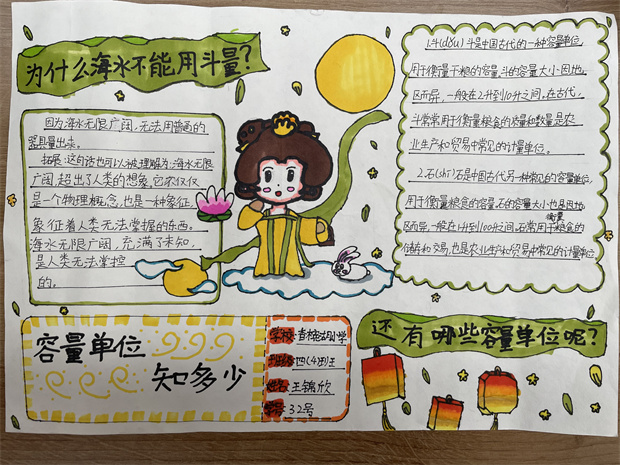 为什么海水不能用斗量？
因为海水无限广阔，无法用普通的
器具量出来。
拓展：这句话也可以被理解为：海水无限
广阔，超出了人类的想象，它不仅仅
是一个物理概念，也是一种象征，
象征着人类无法掌握的东西。
海水无限广阔，充满了未知，
是人类无法掌控
的。
1.斗(dǒu)斗是中国古代的一种容量单位，
用于衡量干粮的容量，斗的容量大小因地
区而异，一般在2升到10升之间。在古代，
斗常常用于衡量粮食的 和数量是农
业生产和贸易中常见的计量单位。
2.石(shí)石是中国古代另一种常见的容量单位，
用于衡量粮食的容量。石的容量大小也是因地
区而异，一般在1升到100升之间。石常用于衡量粮食的
储存和交易，也是农业生产和贸易中常见的计量单位
容量单位
知多少
学校：香 湖小学
班级：四(4)班
姓名：王锦欣
学号：32号
还有哪些容量单位呢？